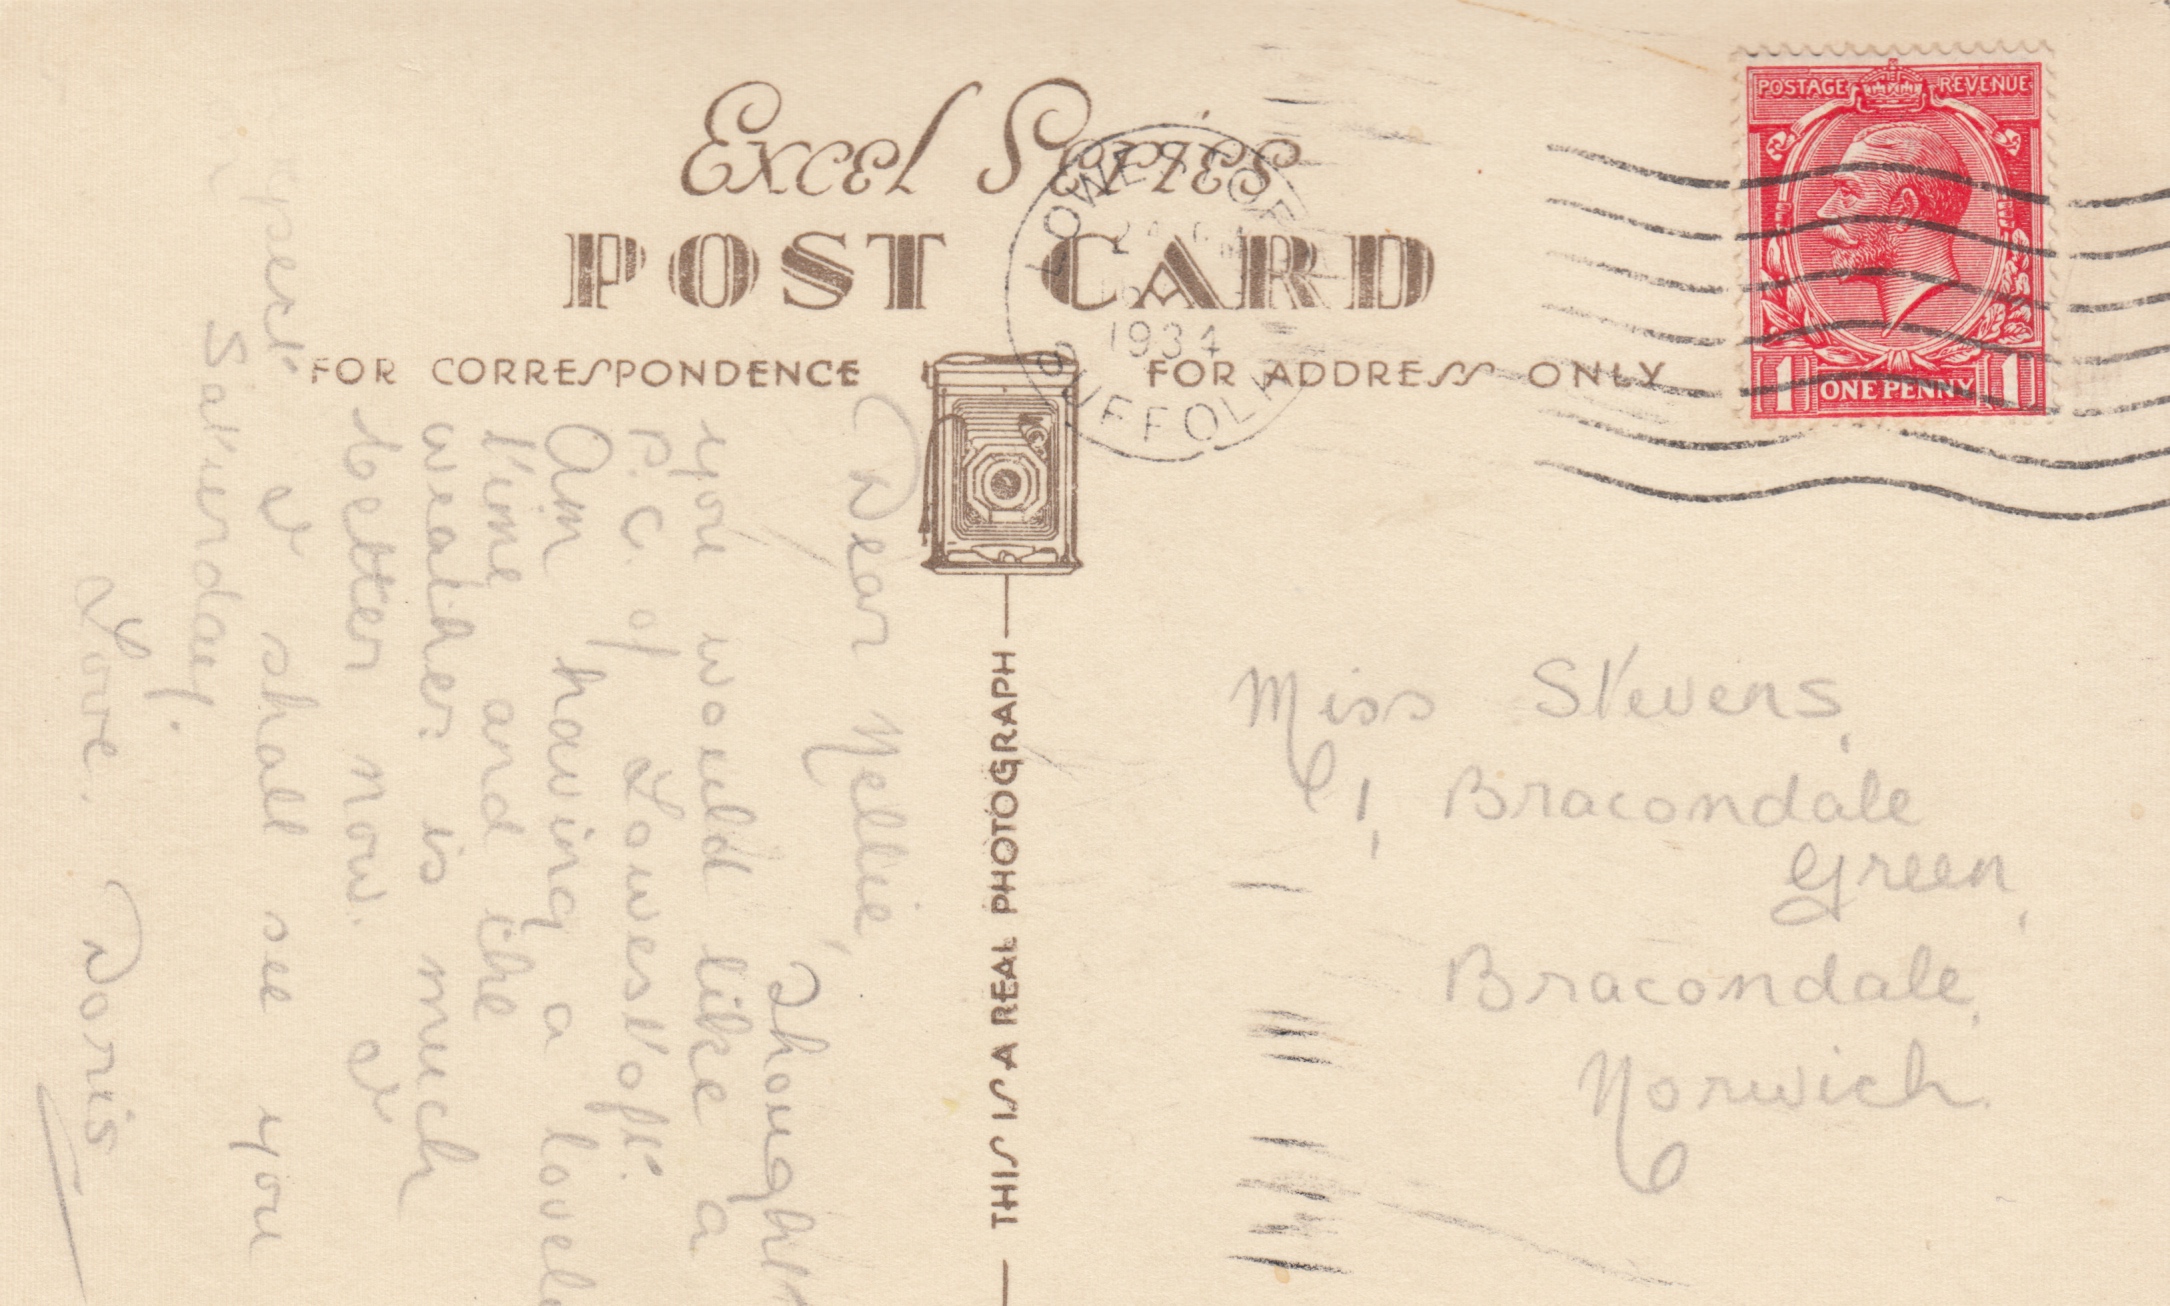 Excel Series
POST CARD
FOR CORRESPONDENCE
FOR ADDRESS ONLY
THIS IS A REAL PHOTOGRAPH
POSTAGE REVENUE
1 ONE PENNY 1
LOWESTOFT
1934
SUFFOLK
Dear Nellie,
Thought
you would like a
P.C. of Lowestoft.
Am having a lovely
time and the
weather is much
better now. I
expect I shall see you
on Saturday.
Love. Doris
Miss Stevens,
1, Bracondale
Green,
Bracondale,
Norwich.